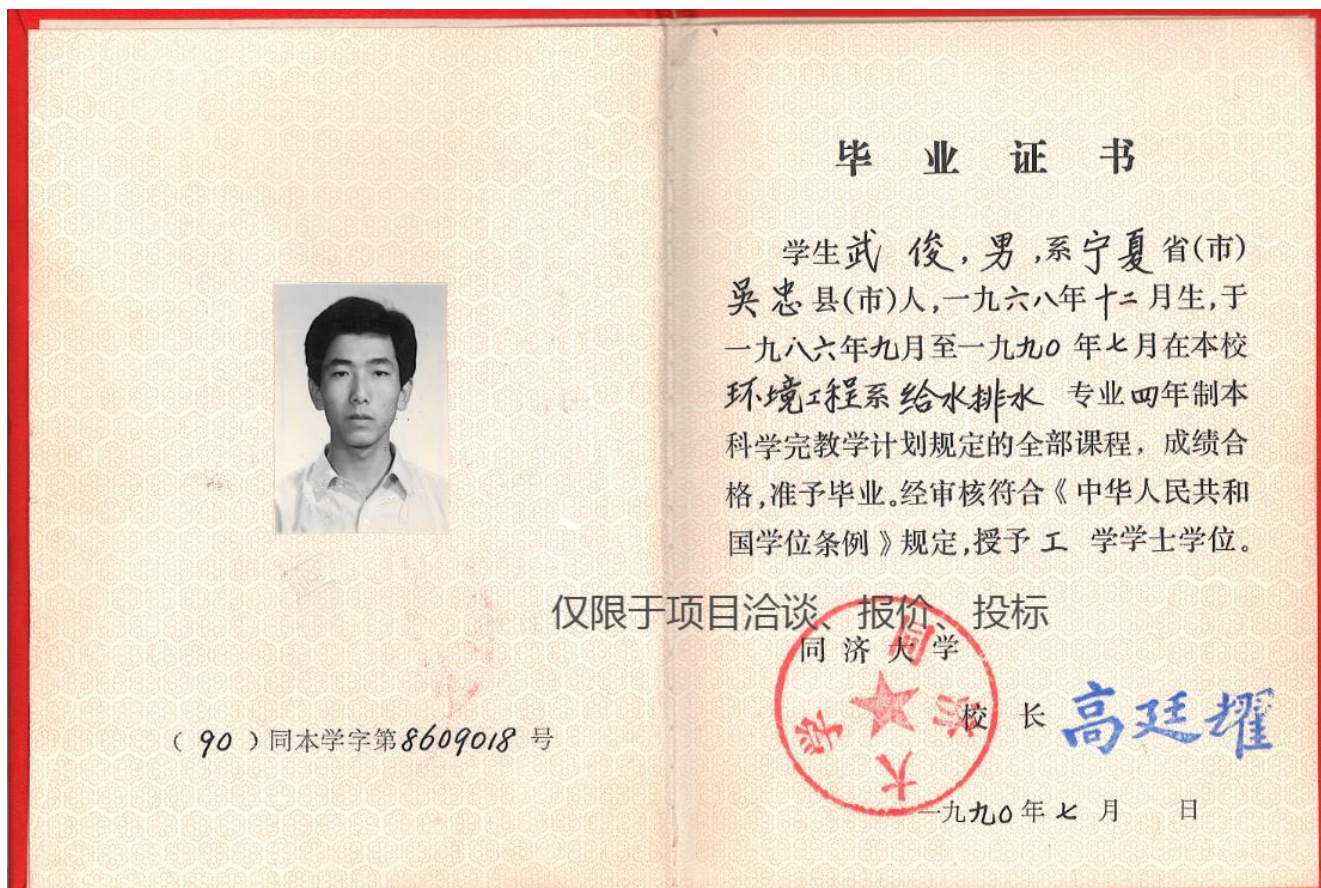 （90）同本学字第8609018号
毕业证书
学生武俊,男,系宁夏省(市)
吴忠县(市)人,一九六八年十二月生,于
一九八六年九月至一九九〇年七月在本校
环境工程系给水排水 专业四年制本
科学完教学计划规定的全部课程，成绩合
格,准予毕业。经审核符合《中华人民共和
国学位条例》规定,授予工 学学士学位。
仅限于项目洽谈、报价、投标
同济大学
同济大学
校 长 高廷耀
一九九〇年七月 日